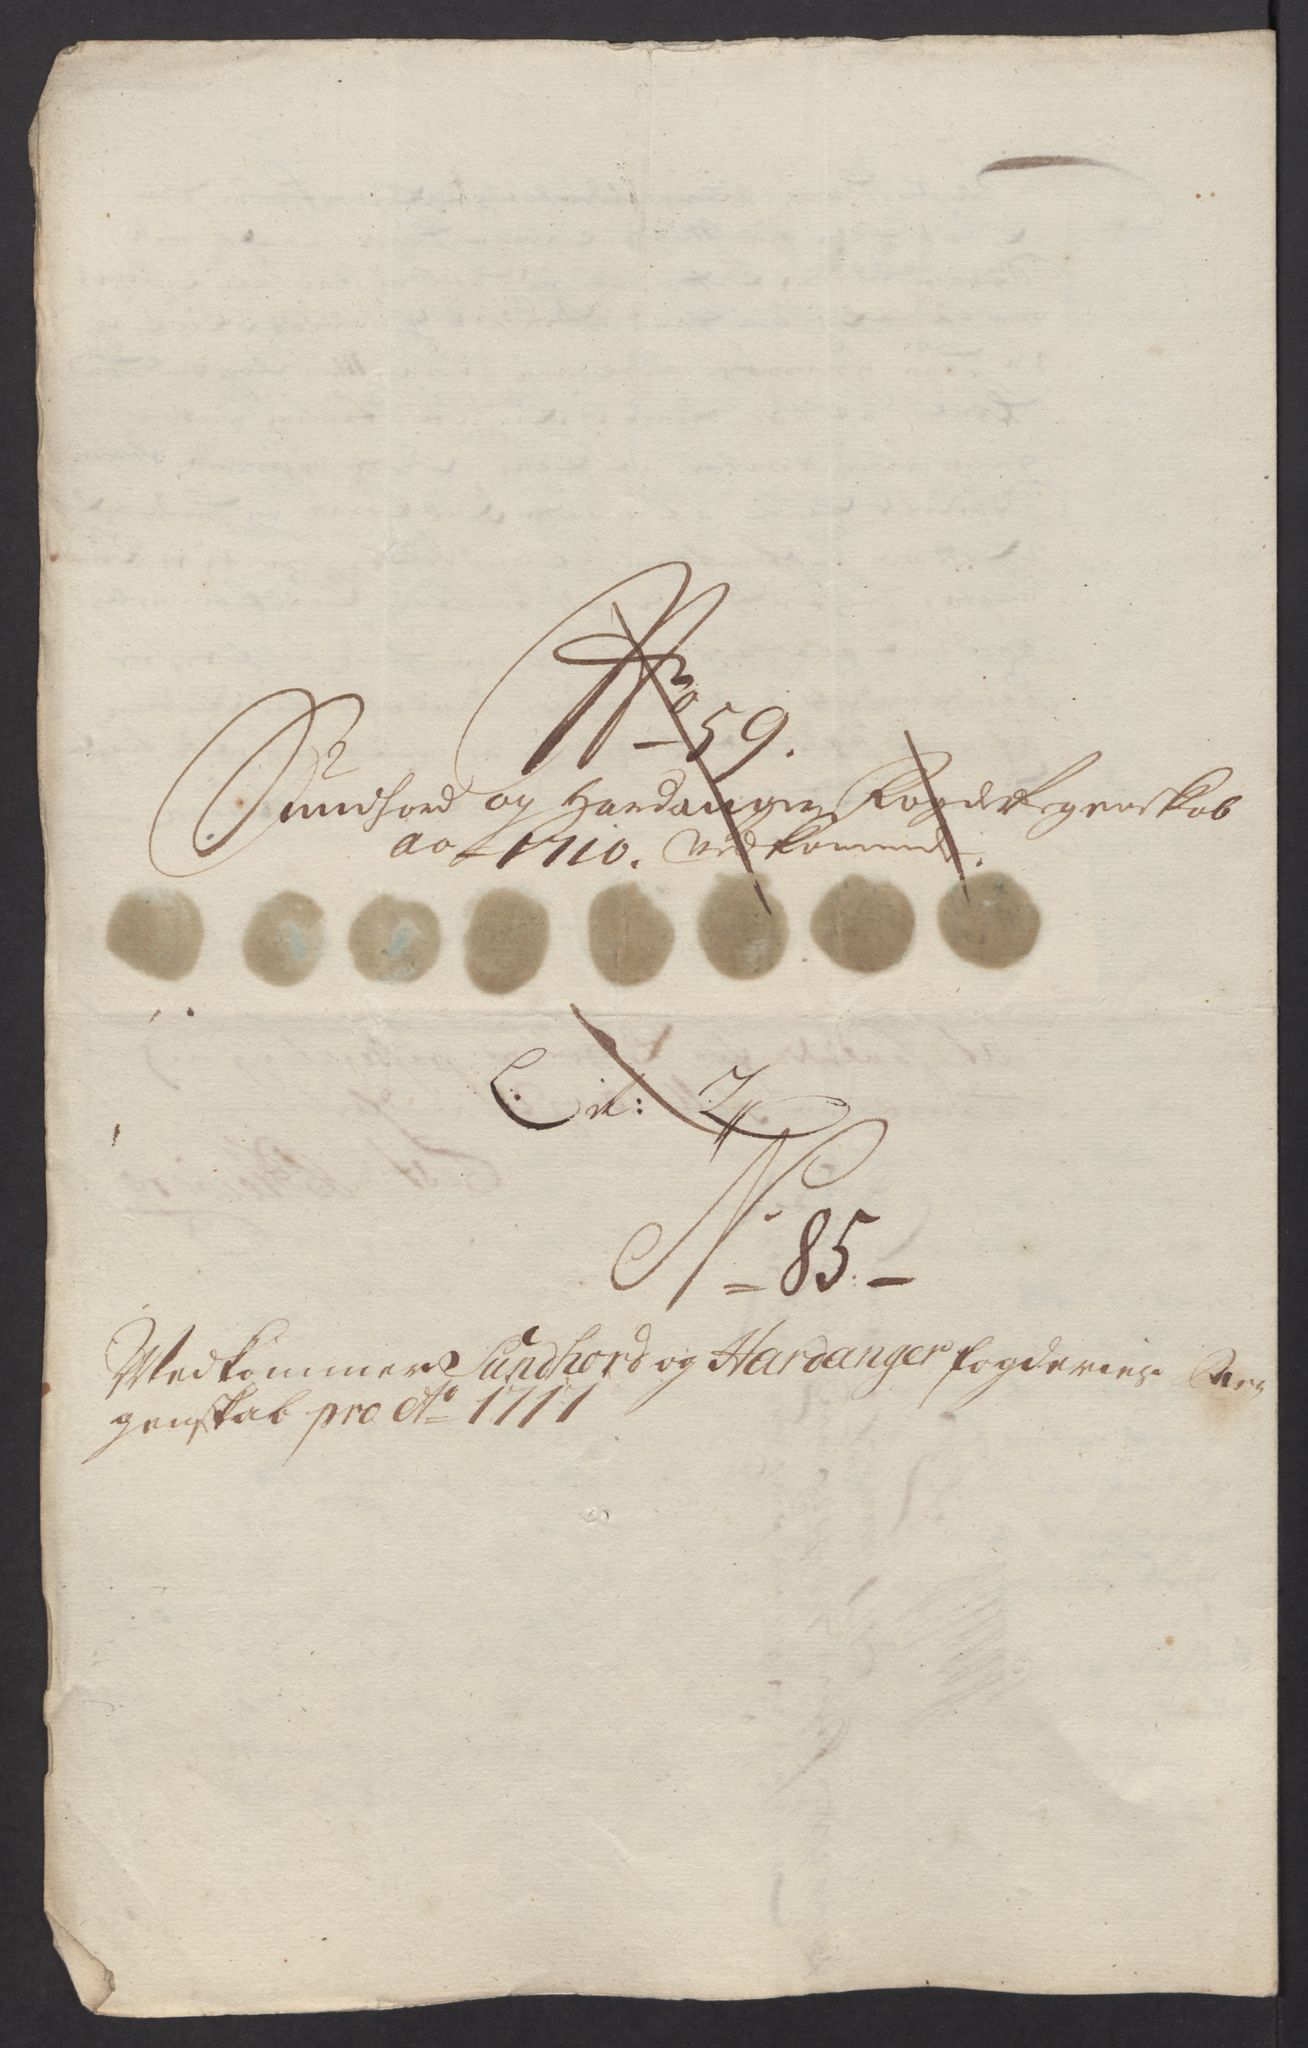 No 59.
Sundhord og Hardanger Fogderegenskab
ao 1710. vedkommende.
Lit: Z
N. 85
Vedkommer Sundhord og Hardanger fogderies Re-
genskab pro Ao 1711